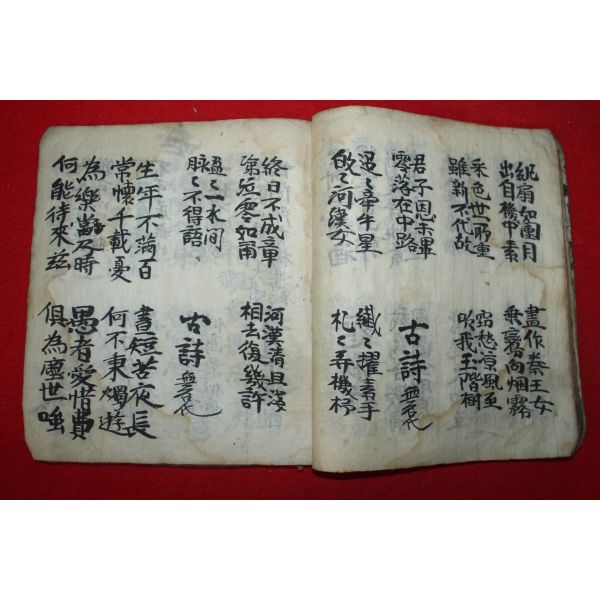 紈扇如團月
出自機中素
畫作秦王女
乘鸞向烟霧
采色世所重
雖新不代故
窃愁凉風至
吹我玉階樹
君子恩未畢
零落在中路
古詩 無名氏
迢〻牽牛星
皎〻河漢女
纖〻擢素手
札〻弄機杼
終日不成章
泣涕零如雨
河漢清且淺
相去復幾許
盈〻一水间
脉〻不得語
古詩 無名氏
生年不滿百
常懷千載憂
晝短苦夜長
何不秉燭遊
為樂當及時
何能待來玆
愚者愛惜費
俱為塵世嗤